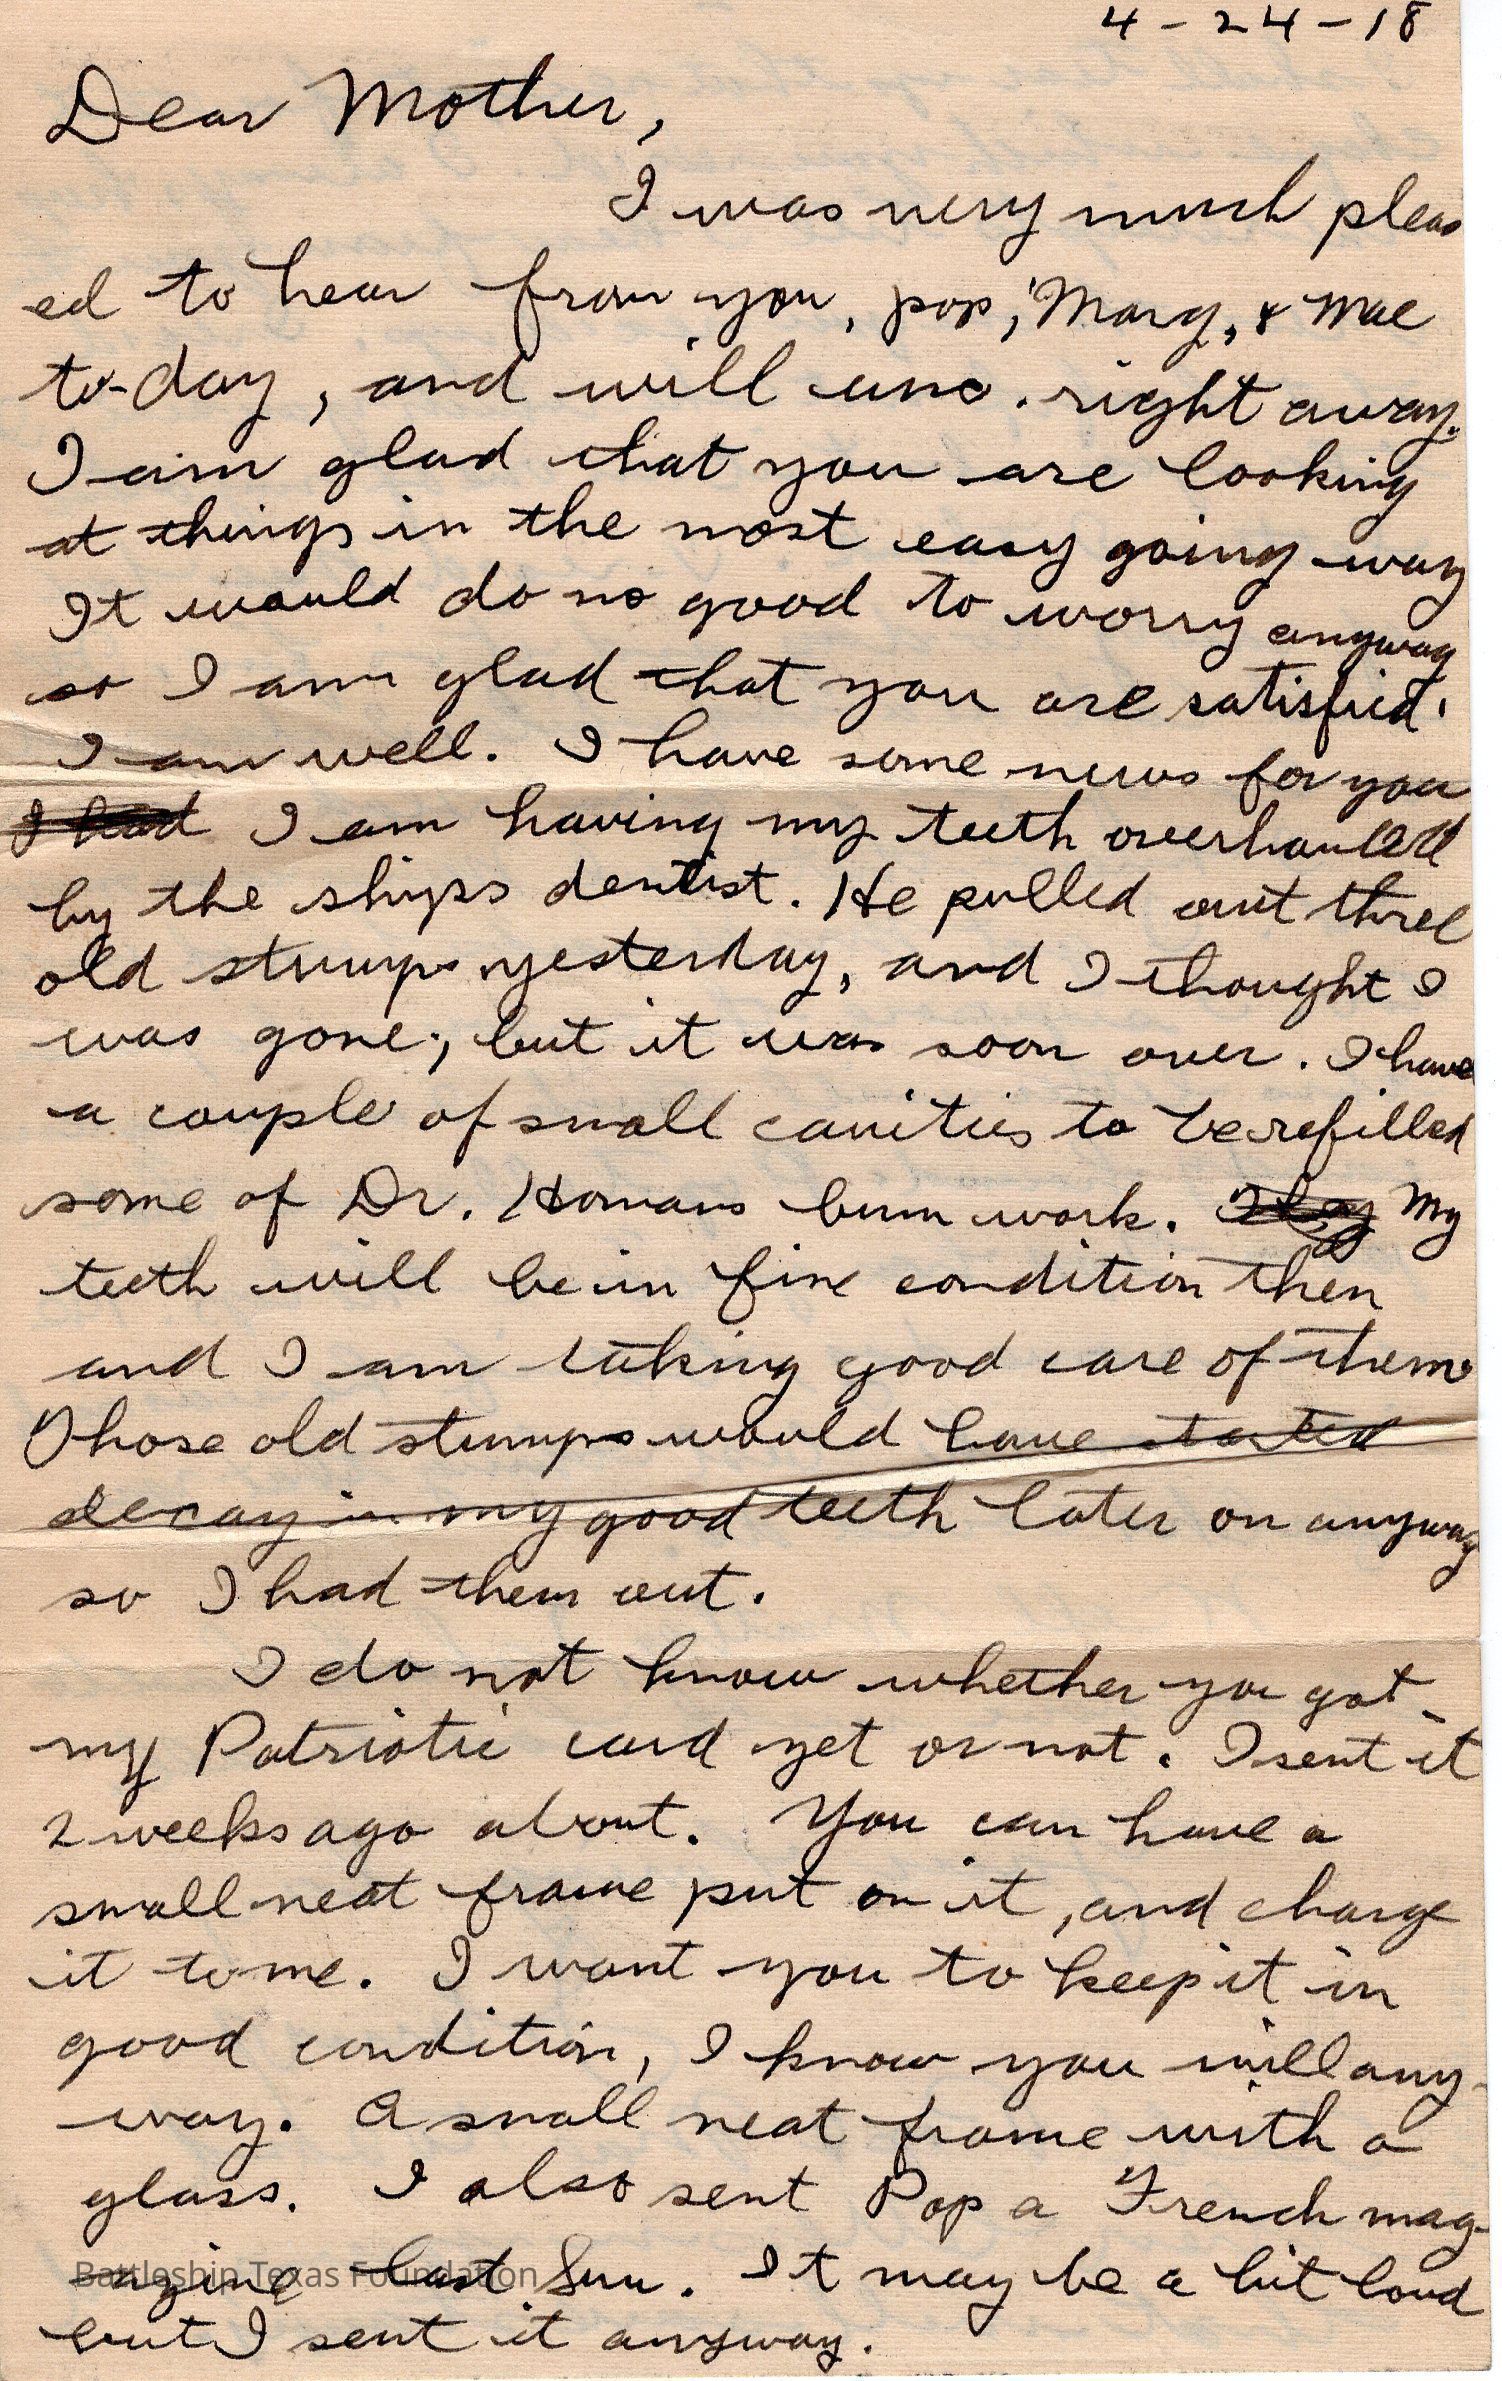 4-24-18
Dear Mother,
I was very much pleas
ed to hear from you, pop, Marg, & Mae
to-day, and will ans. right away.
I am glad that you are looking
at things in the most easy going way
It would do no good to worry anyway
so I am glad that you are satisfied.
I am well. I have some news for you
I had I am having my teeth overhauled
by the ships dentist. He pulled out three
old stumps yesterday, and I thought I
was gone, but it was soon over. I have
a couple of small cavities to be refilled
some of Dr. Homans bum work. They My
teeth will be in fine condition then
and I am taking good care of them
Those old stumps would have started
decay in my good teeth later on anyway
so I had them out.
I do not know whether you got
my Patriotic card yet or not. I sent it
2 weeks ago about. You can have a
small neat frame put on it, and charge
it to me. I want you to keep it in
good condition, I know you will any-
way. A small neat frame with a
glass. I also sent Pop a French mag-
azine last Sun. It may be a bit loud
but I sent it anyway.
Battleship Texas Foundation